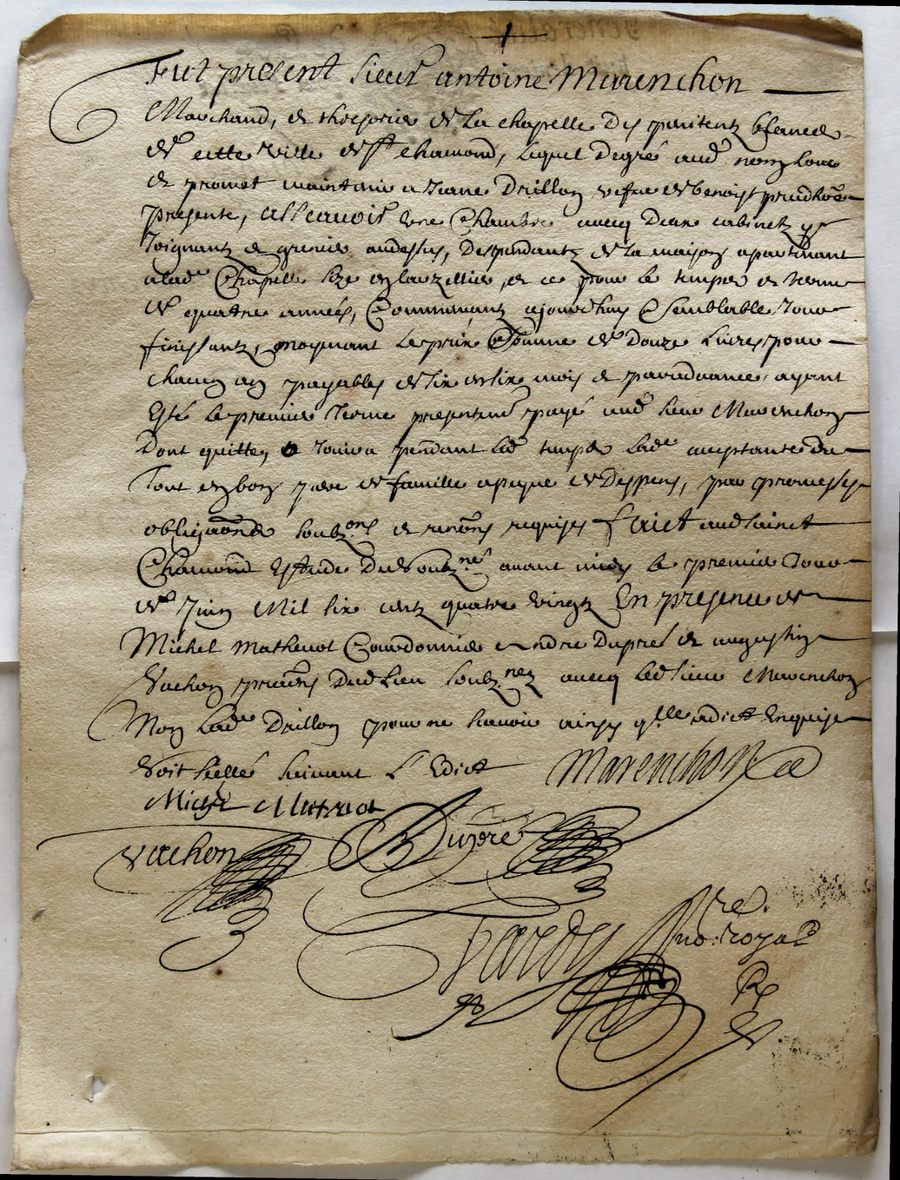 Fut present sieur antoine Marenchon
Marchand, et thresorier de La chapelle des penitentz blancz
de cette ville de St chamond, lequel de gré aud nom loue
et promet maintenir a Jeane Drillon vefve de benoist prudhome
presente, assavoir une Chambre avecq deux cabinetz y
Joignantz et grenier audessus, despendantz de La maison apartenant
a lade Chapelle size en et ce pour le temps et terme
de quatre années, Commençant ajourdhuy & semblable Jour
finissantz, moyenant le prix & somme de douze Livres pour
chacun an payables de six en six mois et par advance, ayant
Esté le premier terme presentemt payé aud sieur Marenchon
Dont quitte, Jouira pendant led temps lade acceptante du
Tout en bon pere de famille a peyne de despens, par promesses
obligaons soubzons et renons requises faict aud sainct
Chamond Estude du soubzné avant midy le premier Jour
de Juin Mil six centz quatre vingtz En presence de
Michel Mathevot Courdonnier Andre Dupré et augustin
Vachon dud Lieu soubznez avecq led sieur Marenchon
Non lade Drillon pour ne scavoir ainsy qlle a dict Enquise
Soit sellé suivant l'Edict
Marenchon
Michel Matevot
vachon
Dupré
Tardy
no: royal
re.